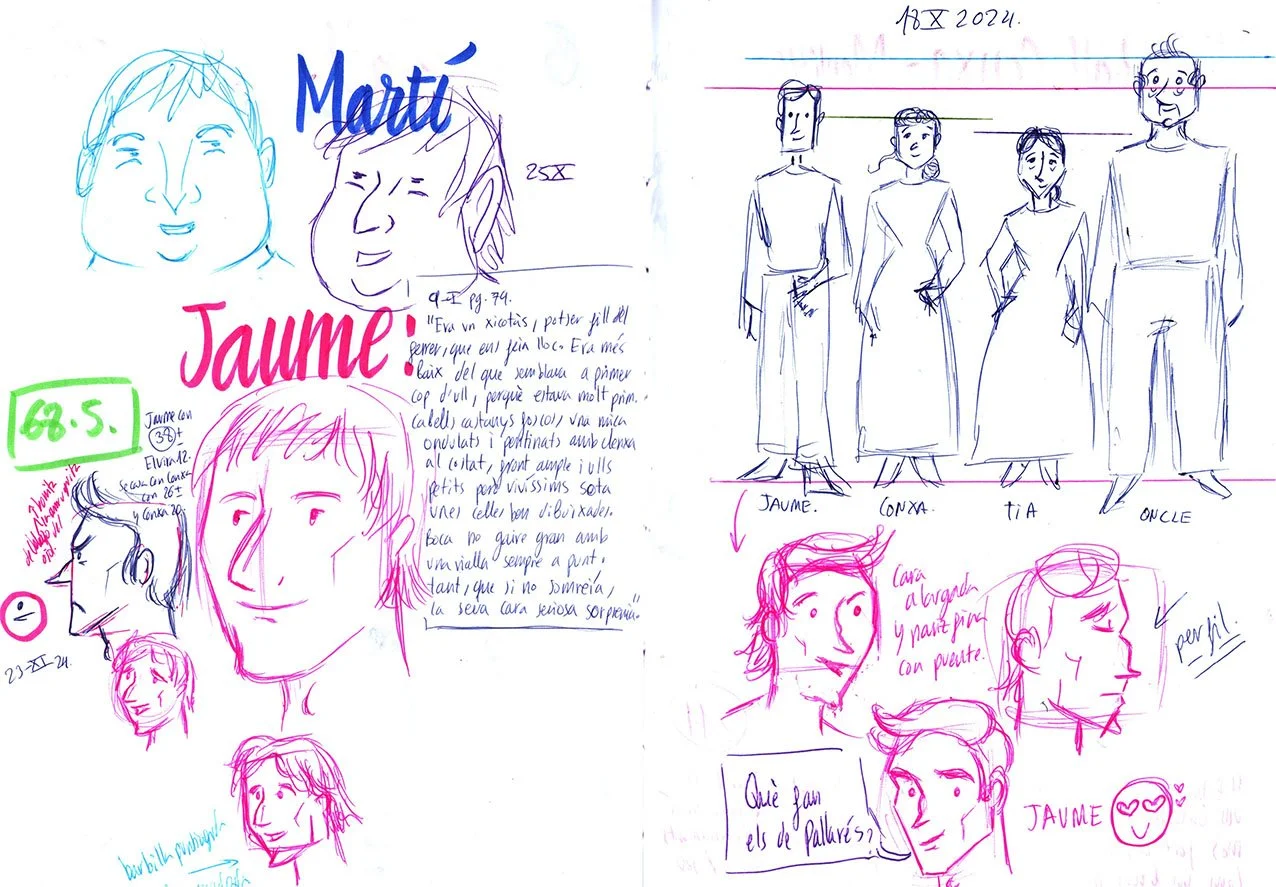 Martí
25X
Jaume:
9-I pg. 79.
"Era un xicotàs, potser fill del
ferrer, que ens feia lloc. Era més
baix del que semblava a primer
cop d'ull, perquè estava molt prim.
Cabells castanys foscos, una mica
ondulats i pentinats amb clenxa
al costat, front ample i ulls
petits però vivíssims sota
unes celles ben dibuixades.
Boca no gaire gran amb
una rialla sempre a punt.
tant, que si no somreía,
la seva cara seriosa sorprenia."
68.5.
Jaume con
38±
Elvira 12.
Se casa con Conxa
con 26±
y Conxa 20.
debajo del
ojo.
23-XI-24.
barbilla
18 X 2024.
JAUME.
CONXA.
TIA
ONCLE
Cara
alargada
y nariz fina
con puente.
perfil.
Què fan
els de Pallarés?
JAUME